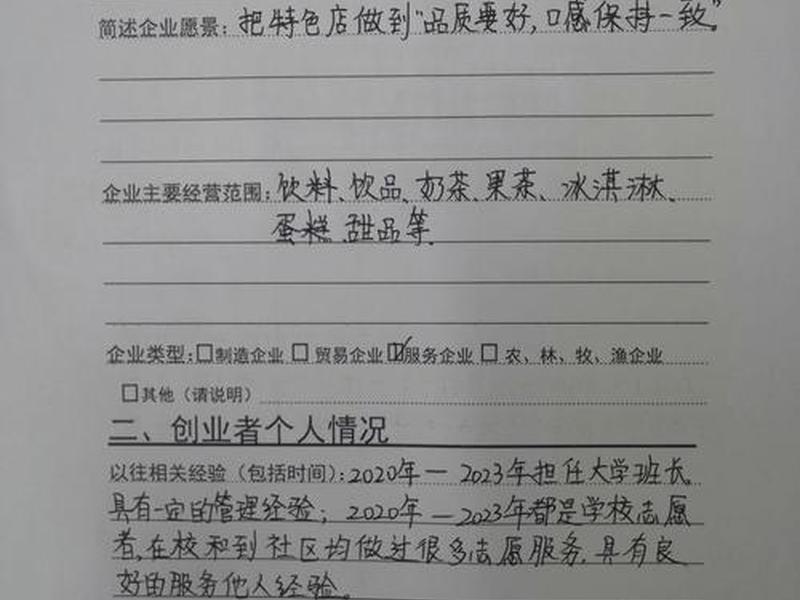 简述企业愿景：把特色店做到“品质要好，口感保持一致”。
企业主要经营范围：饮料、饮品、奶茶、果茶、冰淇淋、
蛋糕、甜品等.
企业类型：□制造企业 □ 贸易企业 ☑服务企业 □ 农、林、牧、渔企业
□其他（请说明）
二、创业者个人情况
以往相关经验（包括时间）：2020年—2023年担任大学班长。
具有一定的管理经验；2020年—2023年都是学校志愿
者，在校和到社区均做过很多志愿服务，具有良
好的服务他人经验。